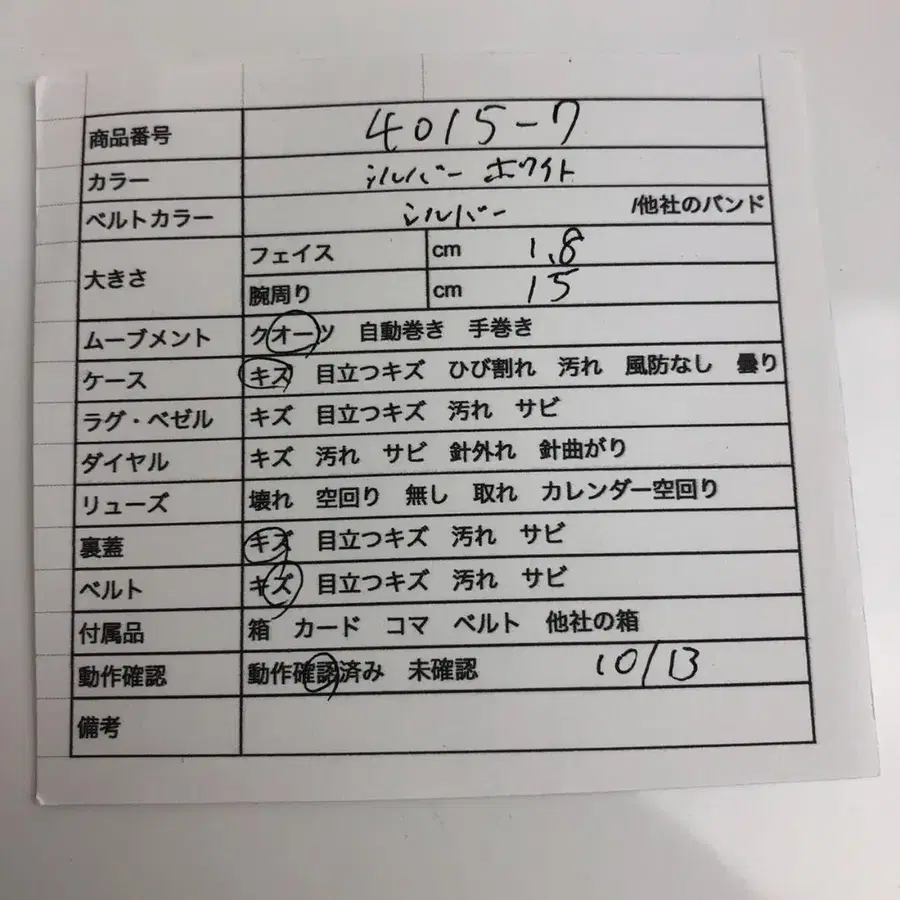 商品番号 4015-7
カラー シルバー ホワイト
ベルトカラー シルバー /他社のバンド
大きさ フェイス cm 1.8
腕周り cm 15
ムーブメント クオーツ 自動巻き 手巻き
ケース キズ 目立つキズ ひび割れ 汚れ 風防なし 曇り
ラグ・ベゼル キズ 目立つキズ 汚れ サビ
ダイヤル キズ 汚れ サビ 針外れ 針曲がり
リューズ 壊れ 空回り 無し 取れ カレンダー空回り
裏蓋 キズ 目立つキズ 汚れ サビ
ベルト キズ 目立つキズ 汚れ サビ
付属品 箱 カード コマ ベルト 他社の箱
動作確認 動作確認済み 未確認 10/13
備考